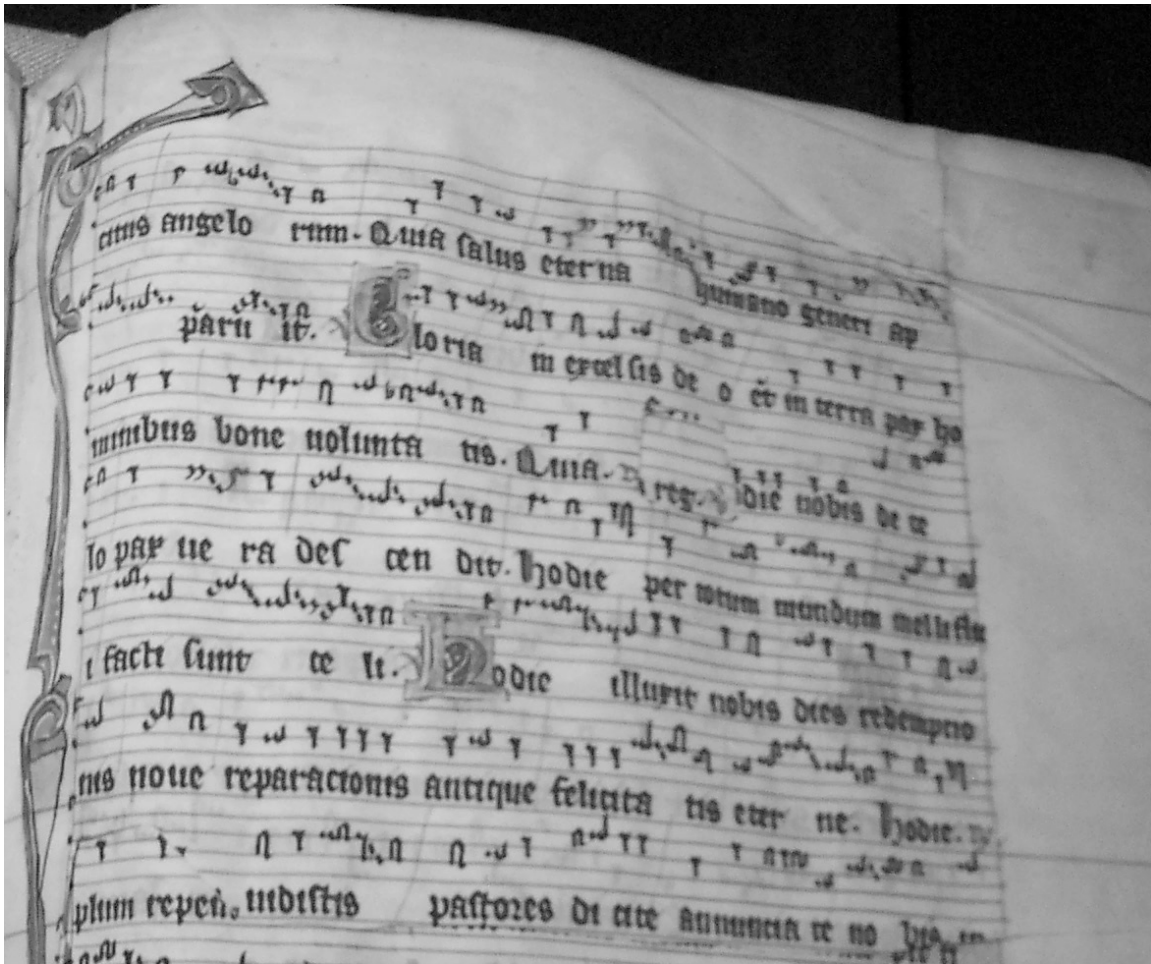 citus angelo rum. Quia salus eterna humano generi ap
paru it. Gloria in excelsis de o et in terra pax ho
minibus bone uolunta tis. Quia. reg. die nobis de ce
lo pax ue ra des cen dit. hodie per totum mundum melliflu
i facti sunt ce li. Hodie illuxit nobis dies redempcio
nis noue reparacionis antique felicita tis eter ne. hodie.
plum repeñ. uidistis pastores di cite annuncia te no bis